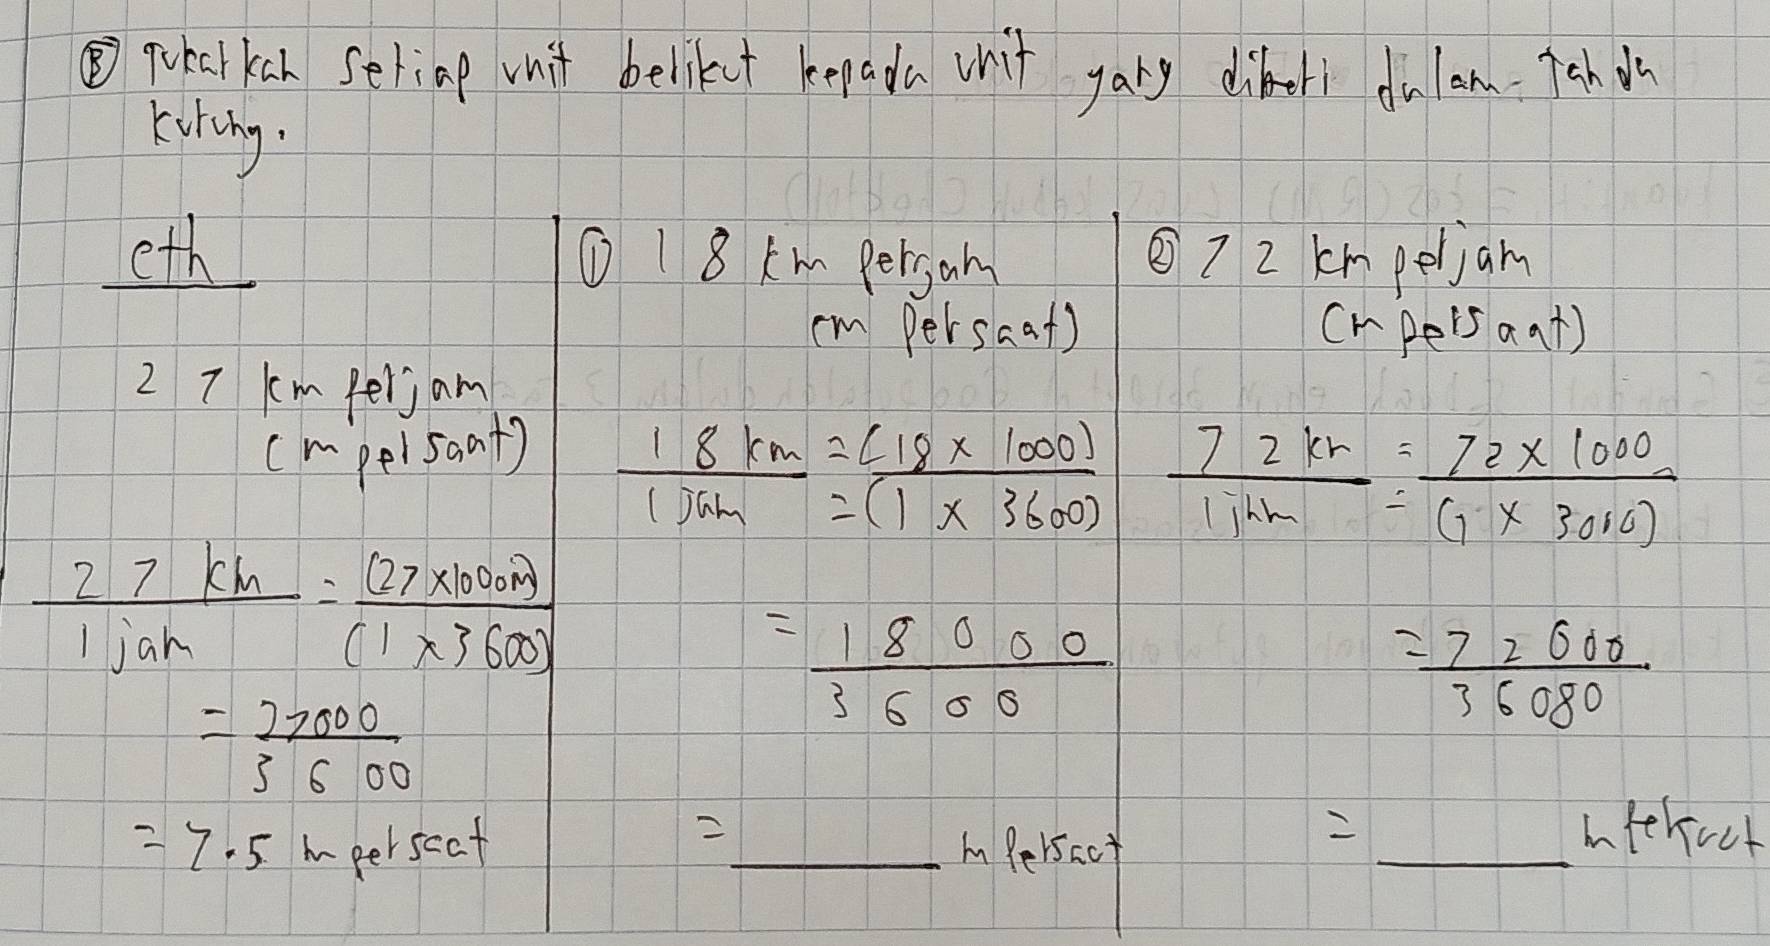 Ⓑ Tukarkan setiap unit berikut kepada unit yang diberi dalam tanda
kurung.
eth
27 km perjam
(m persaat)
27 km = (27 x 1000m)
1 jam (1 x 3600)
= 27000
3600
= 7.5 m persaat
① 18 km perjam
(m persaat)
18 km = (18 x 1000)
1 jam = (1 x 3600)
= 18000
3600
= ______ m persaat
② 72 km perjam
(m persaat)
72 km = 72 x 1000
1 jam = (1 x 3010)
= 72000
36080
= ______ m persaat